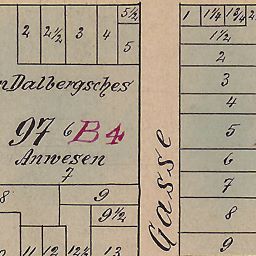 2 2½ 3 4 5½
5
Dalbergsches
97 6 B4
Anwesen
7
8 9
9½
11 12 12½ 13
Gasse
1 1¼ 1¾ 2
1½
2
3
4
5
6
7
8
9